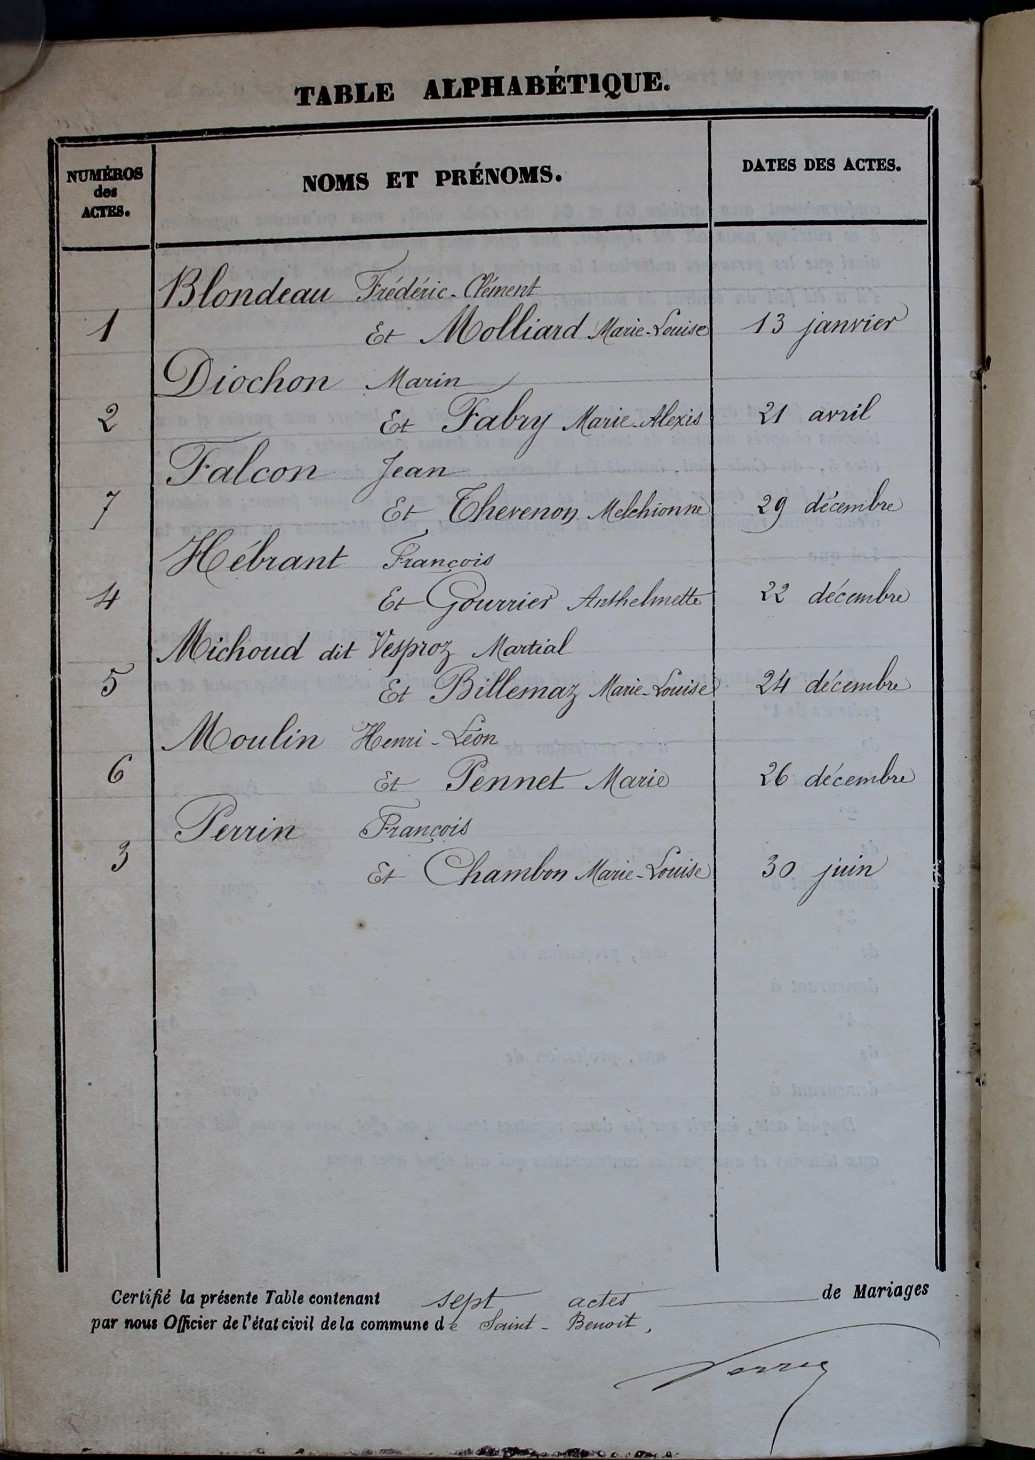 TABLE ALPHABÉTIQUE.
NUMÉROS
des
ACTES.
NOMS ET PRÉNOMS.
DATES DES ACTES.
Blondeau Frédéric-Clément
1 Et Molliard Marie-Louise 13 janvier
Diochon Marin
2 Et Fabry Marie-Alexis 21 avril
Falcon Jean
7 Et Thevenon Melchionne 29 décembre
Hébrant François
4 Et Gourrier Anthelmette 22 décembre
Michoud dit Vesproz Martial
5 Et Billemaz Marie-Louise 24 décembre
Moulin Henri-Léon
6 Et Pennet Marie 26 décembre
Perrin François
3 Et Chambon Marie-Louise 30 juin
Certifié la présente Table contenant sept actes de Mariages
par nous Officier de l'état civil de la commune de Saint-Benoit,